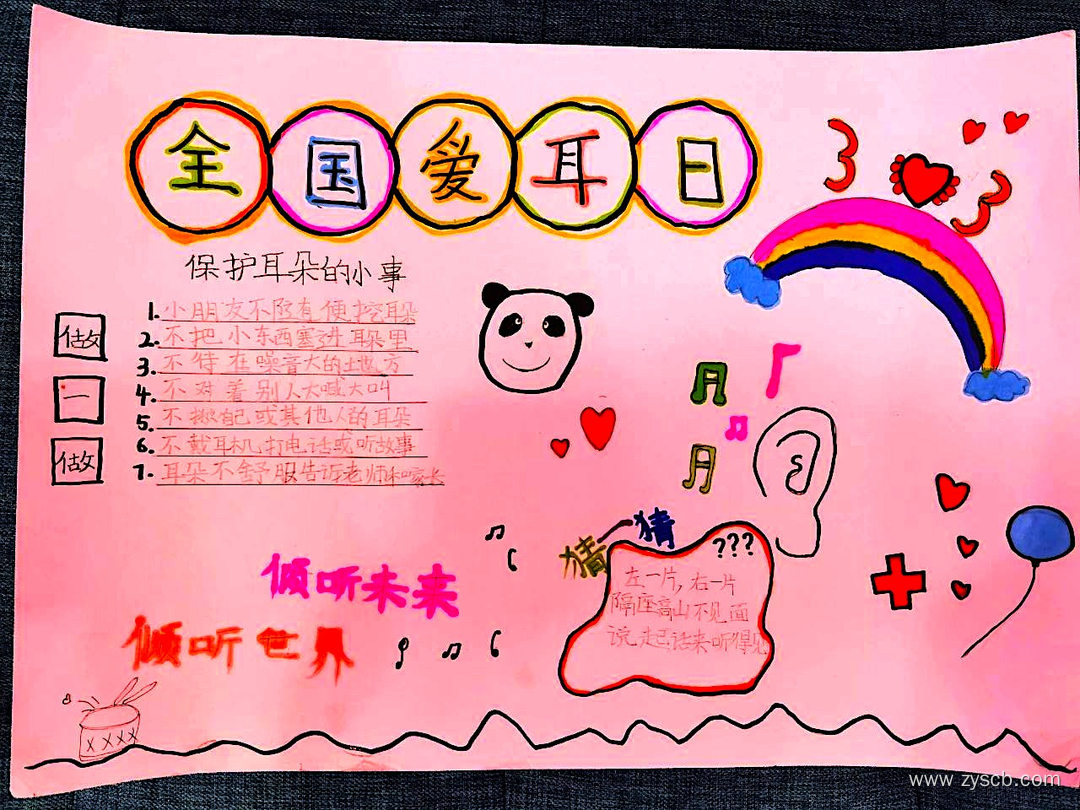 全国爱耳日
3 3
保护耳朵的小事
做一做
1. 小朋友不随有便挖耳朵
2. 不把小东西塞进耳朵里
3. 不待在噪音大的地方
4. 不对着别人大喊大叫
5. 不揪自己或其他人的耳朵
6. 不戴耳机打电话或听故事
7. 耳朵不舒服告诉老师和家长
猜一猜
???
左一片，右一片
隔座高山不见面
说起话来听得见
倾听未来
倾听世界
www.zyscb.com